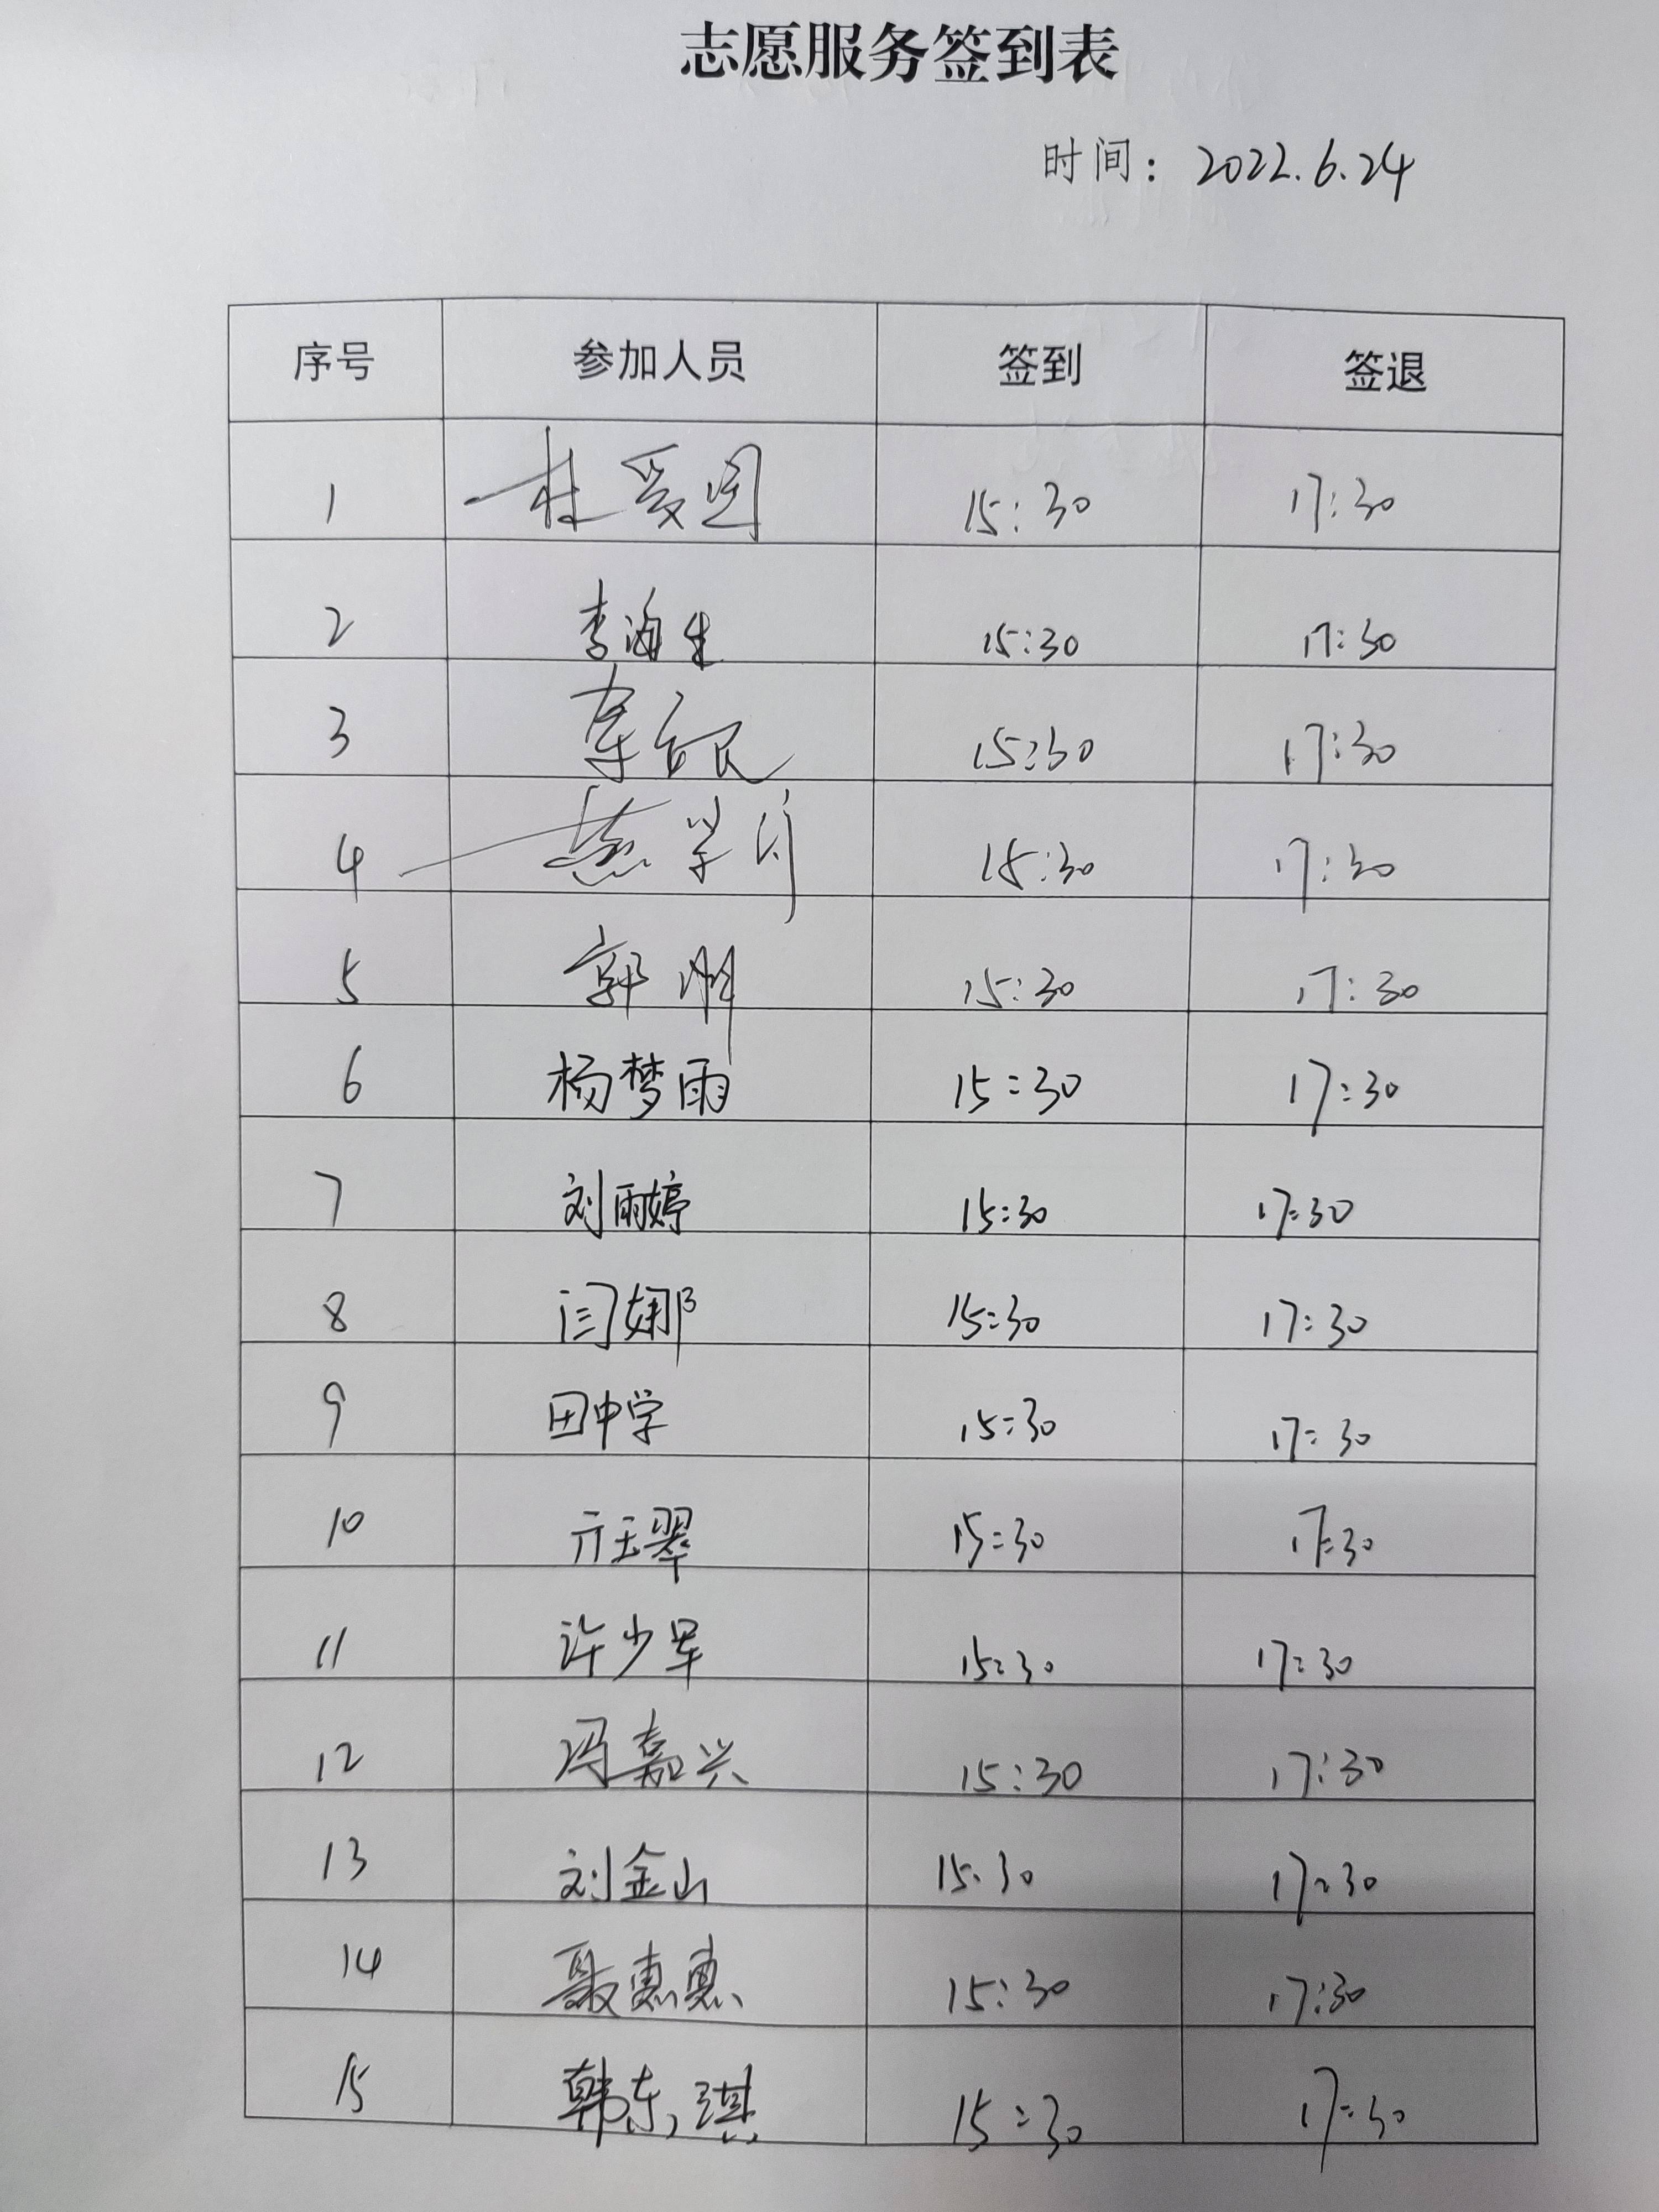 志愿服务签到表
时间：2022.6.24
序号 参加人员 签到 签退
1 杜爱国 15:30 17:30
2 李海生 15:30 17:30
3 15:30 17:30
4 15:30 17:30
5 郭刚 15:30 17:30
6 杨梦雨 15:30 17:30
7 刘雨婷 15:30 17:30
8 闫娜 15:30 17:30
9 田中学 15:30 17:30
10 亓玉翠 15:30 17:30
11 许少军 15:30 17:30
12 冯嘉兴 15:30 17:30
13 刘金山 15:30 17:30
14 聂惠惠 15:30 17:30
15 韩东琪 15:30 17:30